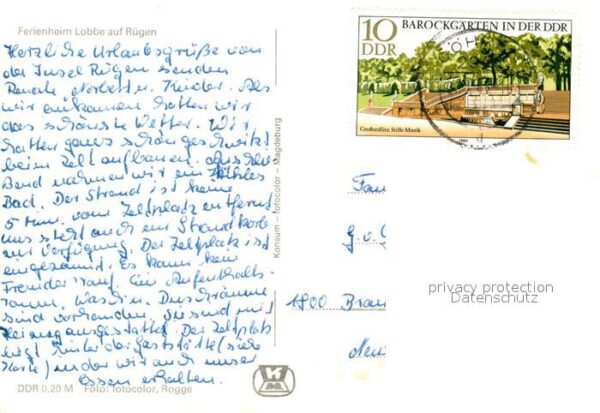 Ferienheim Lobbe auf Rügen
Herzliche Urlaubsgrüße von
der Insel Rügen senden
Renate Norbert u. Kinder. Als
wir ankamen hatten wir
das schönste Wetter. Wir
hatten ganz schön geschwitzt
beim Zeltaufbauen. Anschlie
ßend nahmen wir ein
Bad. Der Strand ist keine
5 Min. vom Zeltplatz entfernt
uns steht auch ein Strandkorb
zur Verfügung. Der Zeltplatz ist
eingezäunt. Es kann kein
Fremder rauf. Ein Aufenthalts-
raum, Wasch u. Duschräume
sind vorhanden. Sie sind mit
Heizung ausgestattet. Der Zeltplatz
liegt hinter der Gaststätte (siehe
Karte) in der wir auch unser
Essen erhalten.
DDR 0,20 M Foto: fotocolor, Rogge
Konsum - fotocolor - Magdeburg
10 BAROCKGÄRTEN IN DER DDR
DDR
Großsedlitz, Stille Musik
GÖH
Fam
G. u.
1800 Bran
privacy protection
Datenschutz